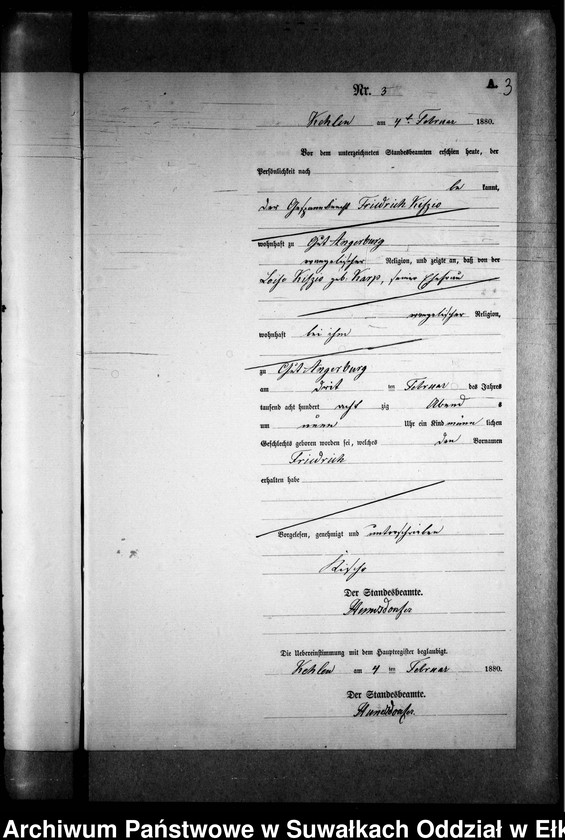 A. 3
Nr. 3
Kehlen am 4t Februar 1880.
Vor dem unterzeichneten Standesbeamten erschien heute, der
Persönlichkeit nach
be kannt,
der Gespannknecht Friedrich
wohnhaft zu Gut Angerburg
evangelischer Religion, und zeigte an, daß von der
geb. Karp, seiner Ehefrau
evangelischer Religion,
wohnhaft bei ihm
zu Gut Angerburg
am Februar des Jahres
tausend acht hundert acht zig Abend s
um neun Uhr ein Kind männ lichen
Geschlechts geboren worden sei, welches den Vornamen
Friedrich
erhalten habe
Vorgelesen, genehmigt und unterschrieben
Der Standesbeamte.
Die Uebereinstimmung mit dem Hauptregister beglaubigt.
Kehlen am 4 ten Februar 1880.
Der Standesbeamte.
Archiwum Państwowe w Suwałkach Oddział w Ełk